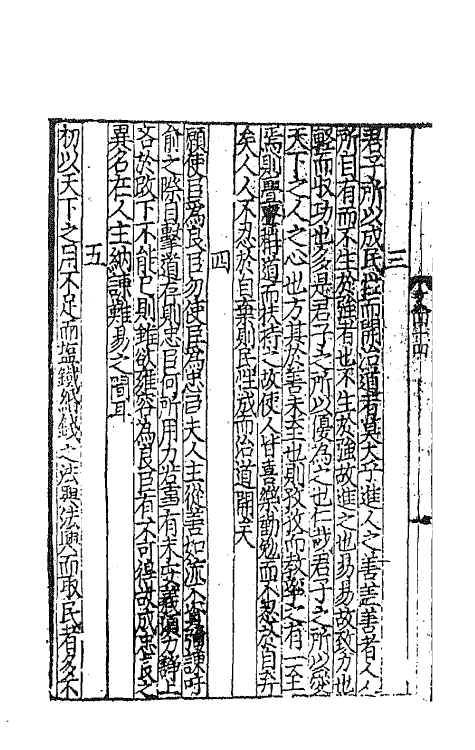 三
君子所以成民性而開治道者莫大乎進人之善蓋善者人人
所自有而不生於強者也不生於強故進之也易易故致力也
輕而收功也多是君子之所以優為之也仁哉君子之所以愛
天下之人之心也方其於善未至也則孜孜而教率之有一至
焉則亹亹稱道而扶持之故使人甘喜樂勸勉而不忍於自弃
矣人人不忍於自棄則民性成而治道開矣
四
願使臣為良臣勿使臣為忠臣夫人主從善如流不資彌諫吁
俞之際目擊道存則忠臣何所用力若事有未安義須力諍上
吝於改下不能已則雖欲雍容為良臣有不可得故成忠良之
異名在人主納諫難易之間耳
五
初以天下之用不足而塩鐵緡錢之法興法興而取民者多不